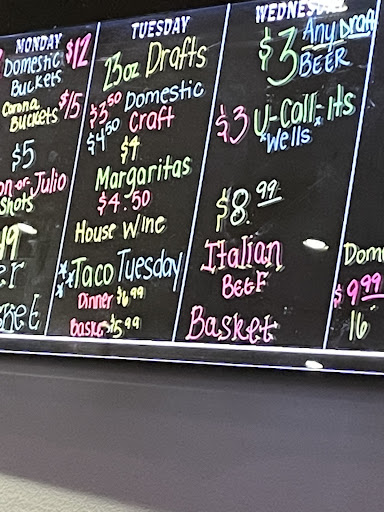 MONDAY
$12
Domestic
Buckets
Corona
Buckets $15
$5
or Julio
Shots
TUESDAY
23oz Drafts
$3.50 Domestic
$4.50 Craft
$4
Margaritas
$4.50
House Wine
Taco Tuesday
Dinner $6.99
Basket $5.99
WEDNES
$3 Any Draft
BEER
$3 U-Call-Its
*Wells*
$8.99
Italian
BEEF
Basket
Dom
$9.99
16